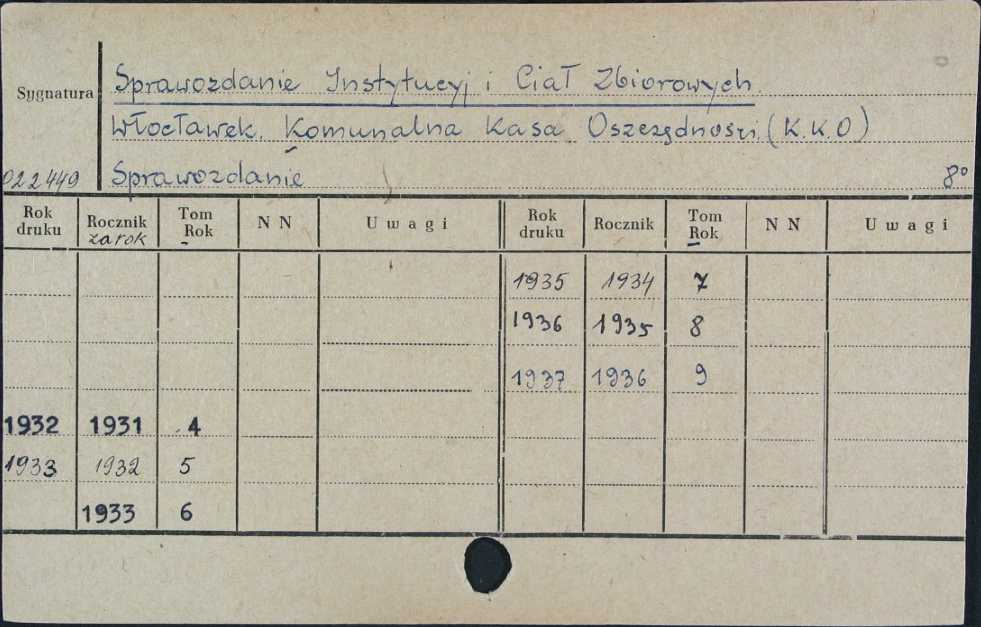 Sygnatura
Sprawozdanie Instytucyj i Ciał Zbiorowych.
Włocławek. Komunalna Kasa Oszczędności. (K.K.O)
022449 Sprawozdanie 8°
Rok druku Rocznik za rok Tom Rok N N Uwagi Rok druku Rocznik Tom Rok N N Uwagi
1935 1934 7
1936 1935 8
1937 1936 9
1932 1931 4
1933 1932 5
1933 6